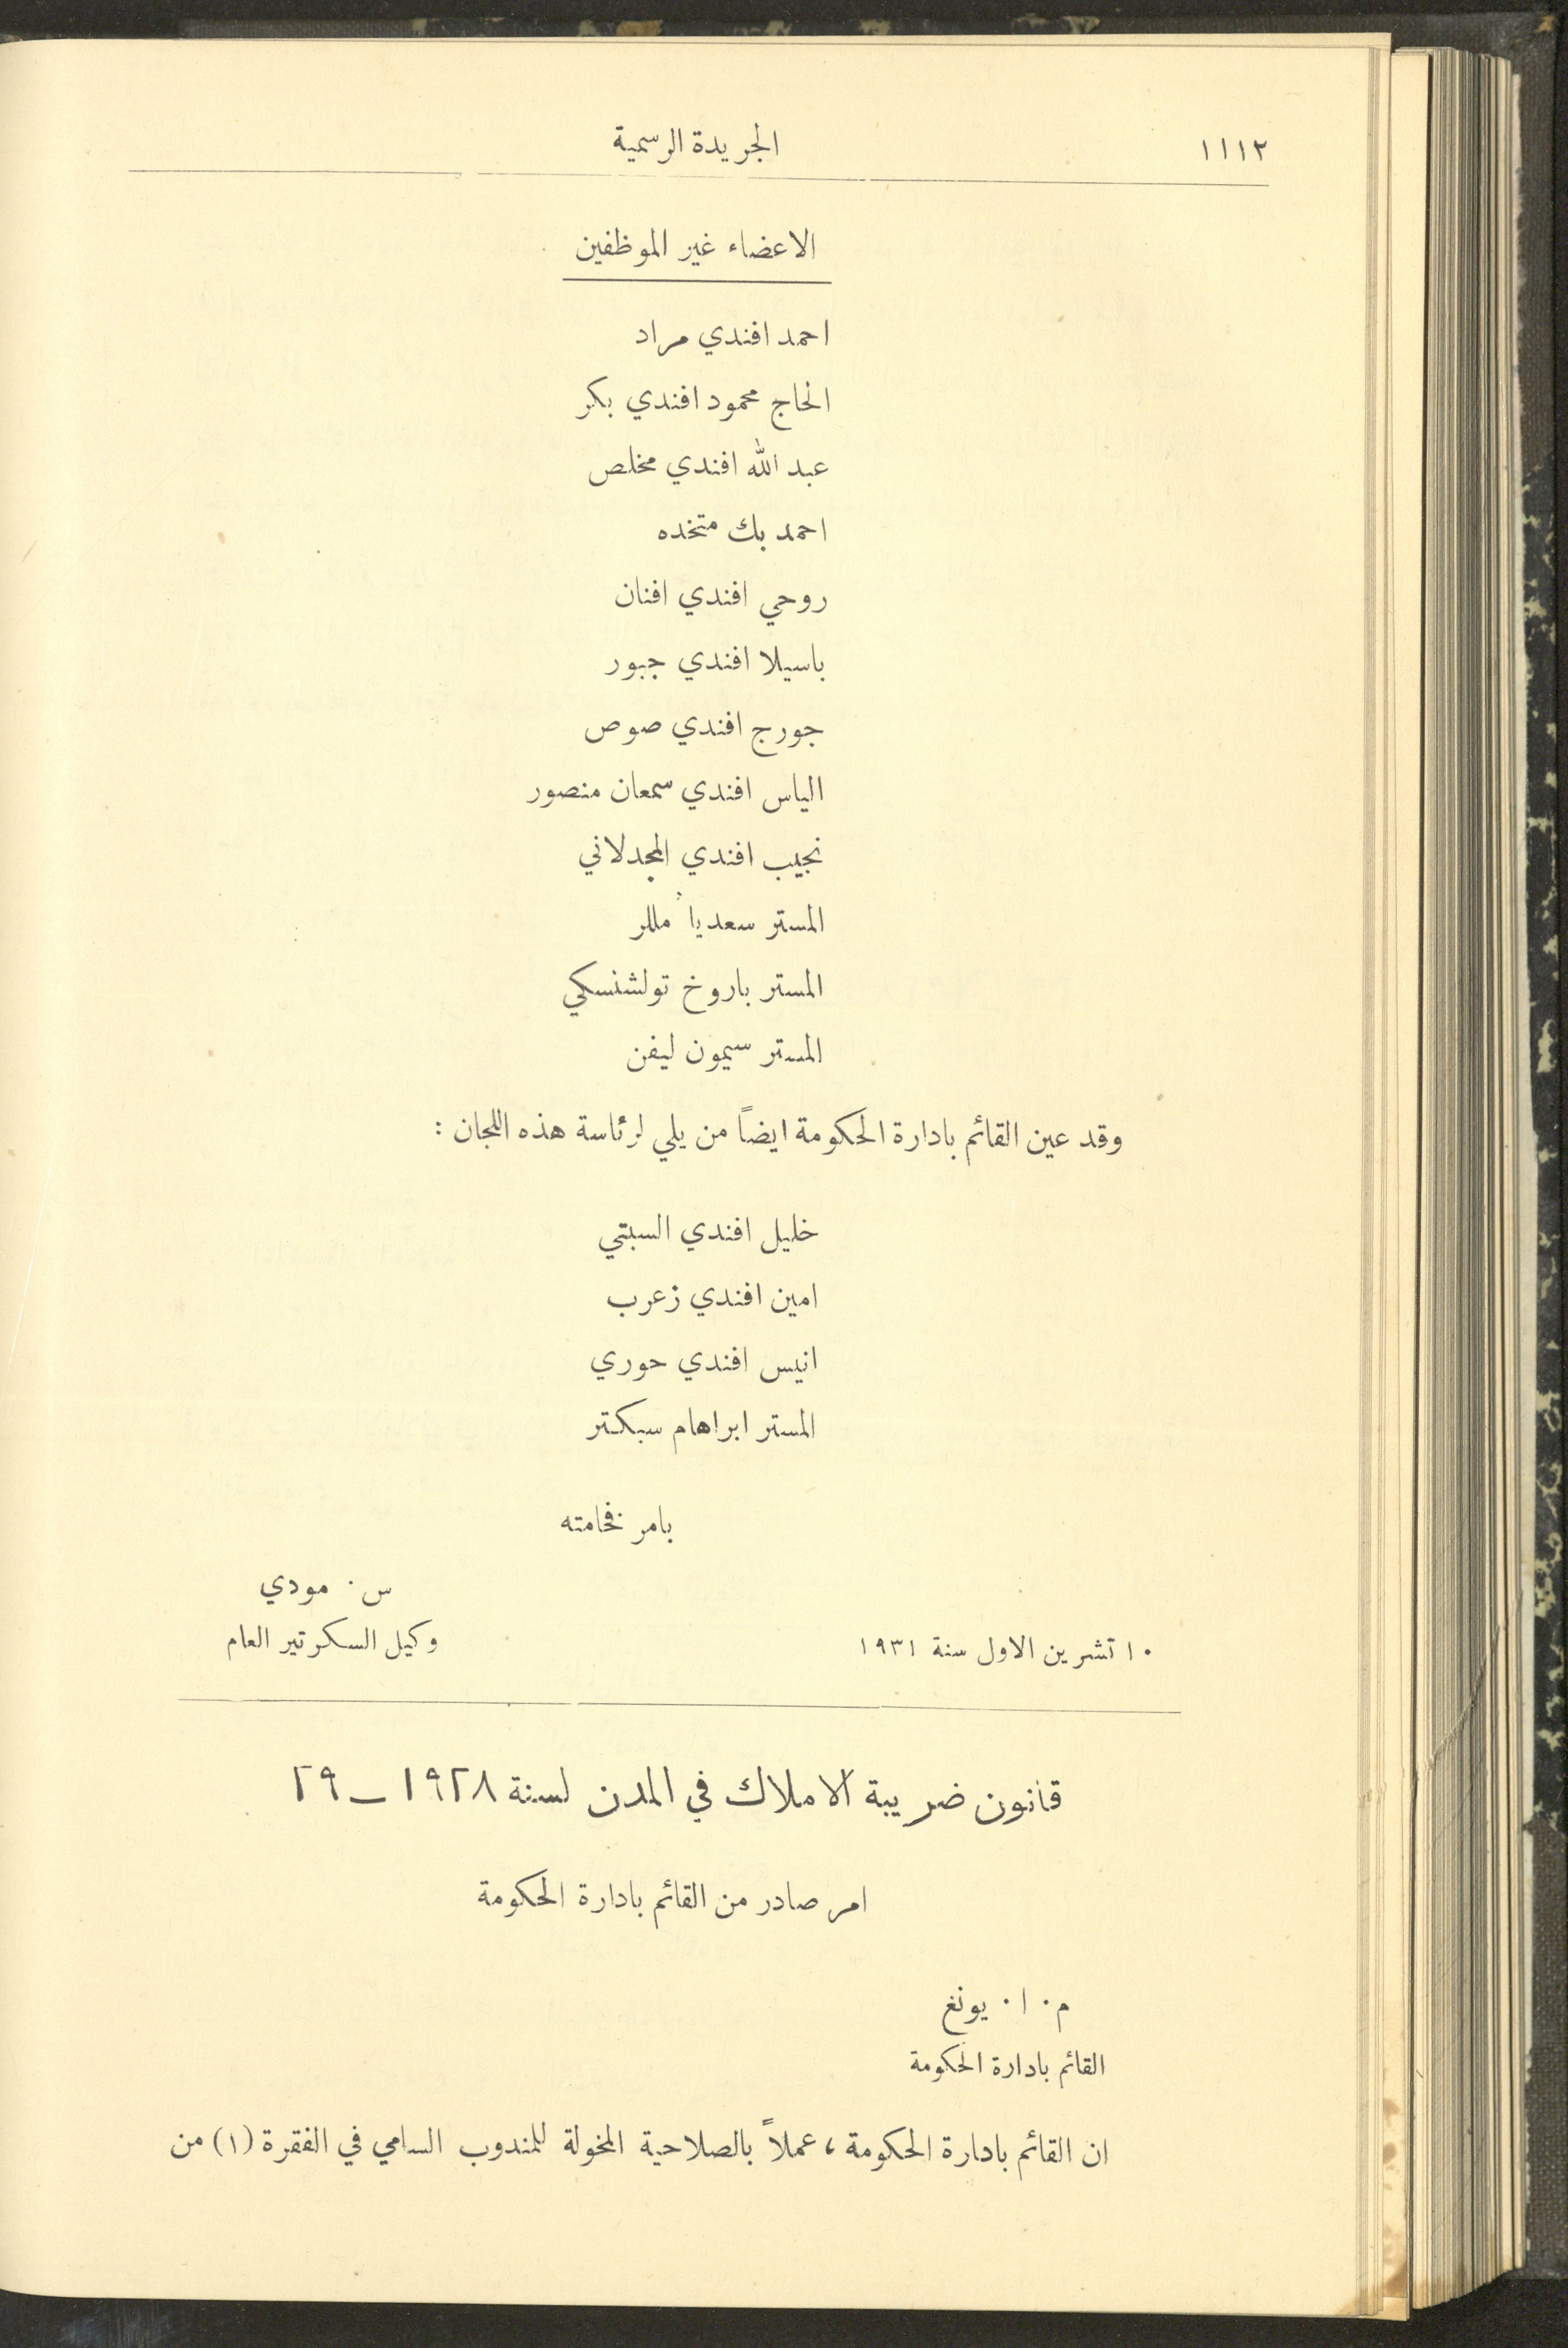 ١١١٢
الجريدة الرسمية
الاعضاء غير الموظفين
احمد افندي مراد
الحاج محمود افندي بكر
عبد الله افندي مخلص
احمد بك متخده
روحي افندي افنان
باسيلا افندي جبور
جورج افندي صوص
الياس افندي سمعان منصور
نجيب افندي المجدلاني
المستر سعديا مللر
المستر باروخ تولشنسكي
المستر سيمون ليفن
وقد عين القائم بادارة الحكومة ايضاً من يلي لرئاسة هذه اللجان :
خليل افندي السبتي
امين افندي زعرب
انيس افندي حوري
المستر ابراهام سبكتر
بامر فخامته
س . مودي
١٠ تشرين الاول سنة ١٩٣١
وكيل السكرتير العام
قانون ضريبة الاملاك في المدن لسنة ١٩٢٨ – ٢٩
امر صادر من القائم بادارة الحكومة
م . ا . يونغ
القائم بادارة الحكومة
ان القائم بادارة الحكومة ، عملاً بالصلاحية المخولة للمندوب السامي في الفقرة (١) من